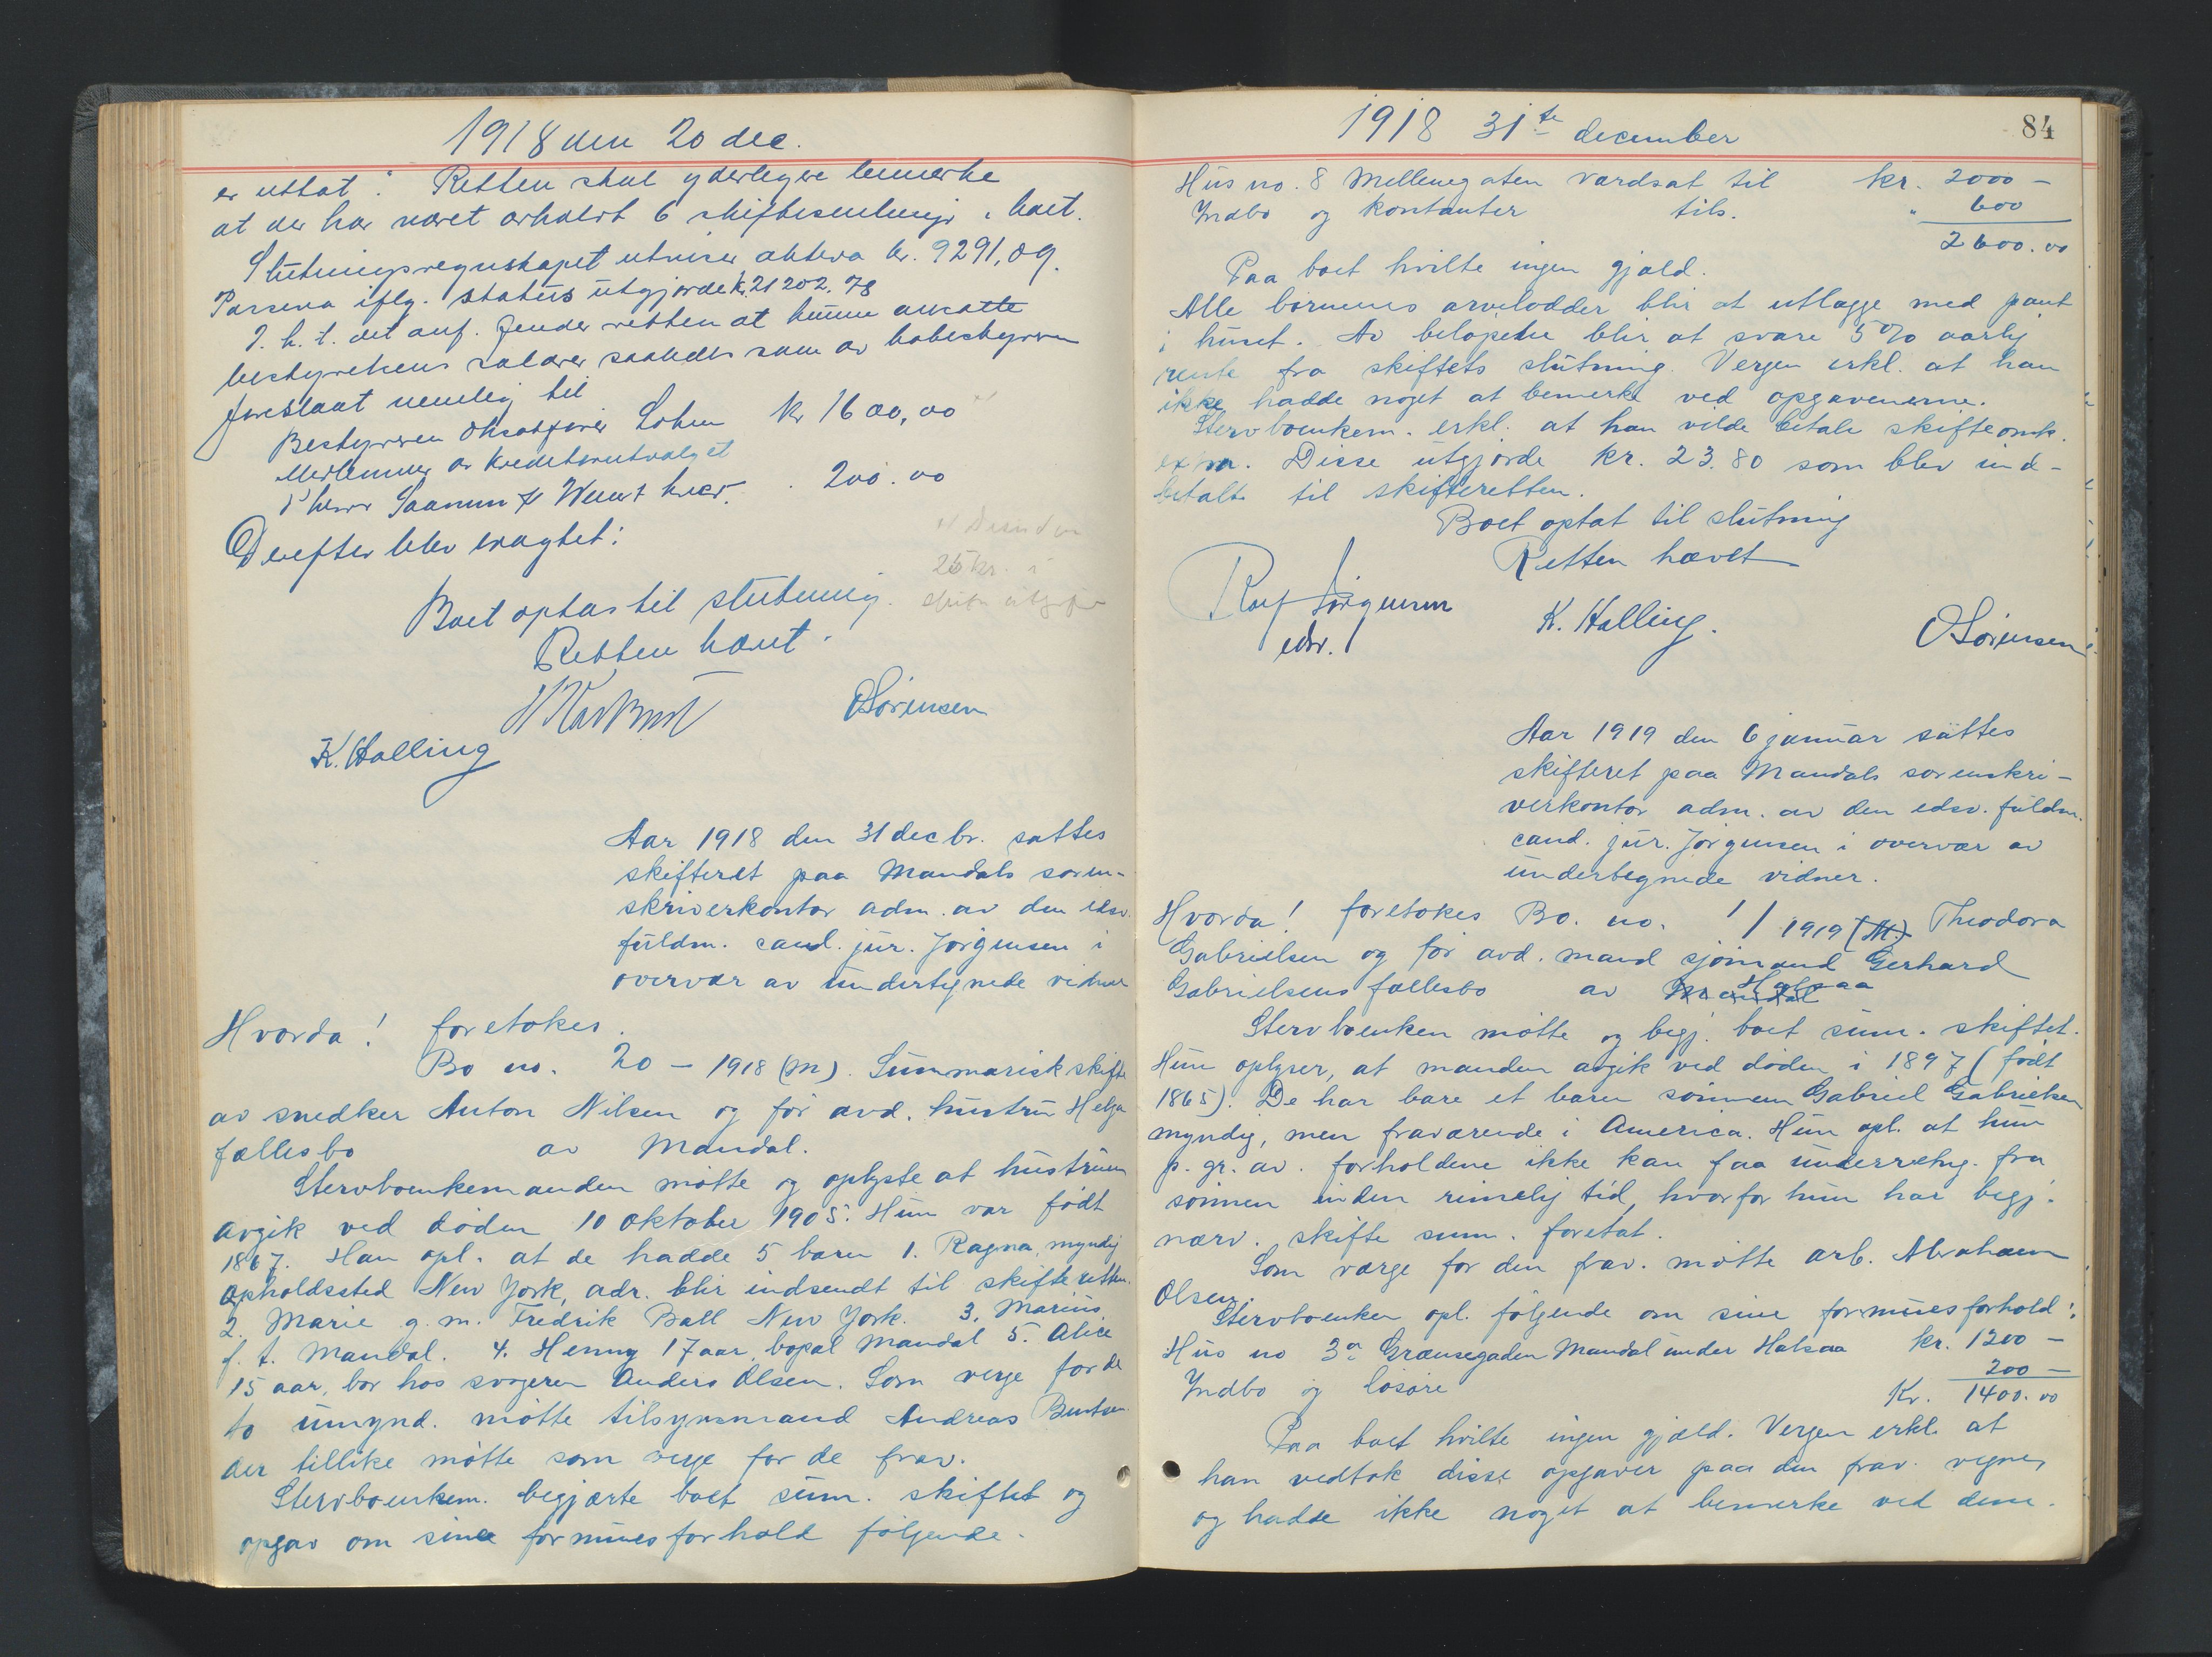 1918 den 20 dec.
er uttat". Retten skal yderligere bemerke
at der har været avholdt 6 skiftesamlinger i boet.
Slutningsregnskapet utviser aktiva kr. 9291,09.
Passiva iflg. status utgjorde kr. 21202.78
I. h. t. det anf. finder retten at kunne ansætte
bestyrelsens salærer saaledes som av bobestyreren
foreslaat nemlig til
Bestyreren Kr 1600,00 x)
Medlemmer av Kreditorutvalget
200.00
Derefter blev eragtet:
25 kr. i
Boet optas til slutning.
Retten hævet.
OSørensen
K. Halling
Aar 1918 den 31 decbr. sattes
skifteret paa Mandals soren-
skriverkontor adm. av den edsv.
fuldm. cand. jur. Jørgensen i
overvær av undertegnede vidner
Hvorda! foretokes.
Bo no. 20 – 1918 (M). Summarisk skifte
av snedker Anton Nilsen og før avd. hustru Helga
fællesbo av Mandal.
Stervboenkemanden møtte og oplyste at hustruen
avgik ved døden 10 oktober 1905. Hun var født
1867. Han opl. at de hadde 5 barn 1. Ragna, myndig
opholdssted New York, adr. blir indsendt til skifteretten.
2. Marie g. m. Fredrik Ball New York. 3. Marius
f. t. Mandal. 4. Henny 17 aar, bopæl Mandal 5. Alice
15 aar, bor hos svogeren Anders Olsen. Som verge for de
to umynd. møtte tilsynsmand Andreas Berntsen
der tillike møtte som verge for de frav.
Stervboenkem. begjærte boet sum. skiftet og
opgav om sine formuesforhold følgende.
1918 31te december
84
Hus no. 8 Mellemgaten værdsat til kr. 2000 –
Indbo og kontanter tils. " 600
2600.00
Paa boet hvilte ingen gjæld.
Alle børnenes arvelodder blir at utlægge med pant
i huset. Av beløpene blir at svare 5% aarlig
rente fra skiftets slutning. Vergen erkl. at han
ikke hadde noget at bemerke ved opgaverne.
Stervboenkem. erkl. at han vilde betale skifteomk.
extra. Disse utgjorde kr. 23.80 som blev ind-
betalt til skifteretten.
Boet optat til slutning
Retten hævet
Jørgensen
edsv.
K. Halling.
OSørensen
Aar 1919 den 6 januar sattes
skifteret paa Mandals sorenskri-
verkontor adm. av den edsv. fuldm.
cand. jur. Jørgensen i overvær av
undertegnede vidner.
Hvorda! foretokes Bo. no. 1/1919 (M.) Theodora
Gabrielsen og før avd. mand sjømand Gerhard
Gabrielsens fællesbo av Mandal Halsaa
Stervboenken møtte og begj. boet sum. skiftet.
Hun oplyser, at manden avgik ved døden i 1897 (født
1865). De har bare et barn sønnen Gabriel Gabrielsen
myndig, men fraværende i America. Hun opl. at hun
p. gr. av. forholdene ikke kan faa underretng. fra
sønnen inden rimelig tid, hvorfor hun har begj.
nærv. skifte sum. foretat.
Som værge for den frav. møtte arb. Abraham
Olsen.
Stervboenken opl. følgende om sine formuesforhold:
Hus no 3a Grænsegaden Mandal under Halsaa kr. 1200 –
Indbo og løsøre 200 –
Kr. 1400.00
Paa boet hvilte ingen gjæld. Vergen erkl. at
han vedtok disse opgaver paa den frav. vegne,
og hadde ikke noget at bemerke ved dem.